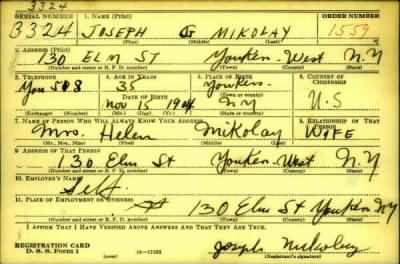 3324
SERIAL NUMBER 1. NAME (Print) ORDER NUMBER
3324 JOSEPH G MIKOLAY 1559
(First) (Middle) (Last)
2. ADDRESS (Print)
130 ELM ST Yonkers West N.Y
(Number and street or R. F. D. number) (Town) (County) (State)
3. TELEPHONE 4. AGE IN YEARS 5. PLACE OF BIRTH 6. COUNTRY OF CITIZENSHIP
Yon 508 35 Yonkers
DATE OF BIRTH (Town or county)
Nov 15 1904 NY U.S
(Exchange) (Number) (Mo.) (Day) (Yr.) (State or country)
7. NAME OF PERSON WHO WILL ALWAYS KNOW YOUR ADDRESS 8. RELATIONSHIP OF THAT PERSON
Mrs. Helen Mikolay WIFE
(Mr., Mrs., Miss) (First) (Middle) (Last)
9. ADDRESS OF THAT PERSON
130 Elm St Yonkers West N.Y
(Number and street or R. F. D. number) (Town) (County) (State)
10. EMPLOYER'S NAME
Self
11. PLACE OF EMPLOYMENT OR BUSINESS
130 Elm St Yonkers NY
(Number and street or R. F. D. number) (Town) (County) (State)
I AFFIRM THAT I HAVE VERIFIED ABOVE ANSWERS AND THAT THEY ARE TRUE.
REGISTRATION CARD
D. S. S. Form 1 16—17105 Joseph Mikolay
(Registrant's signature)